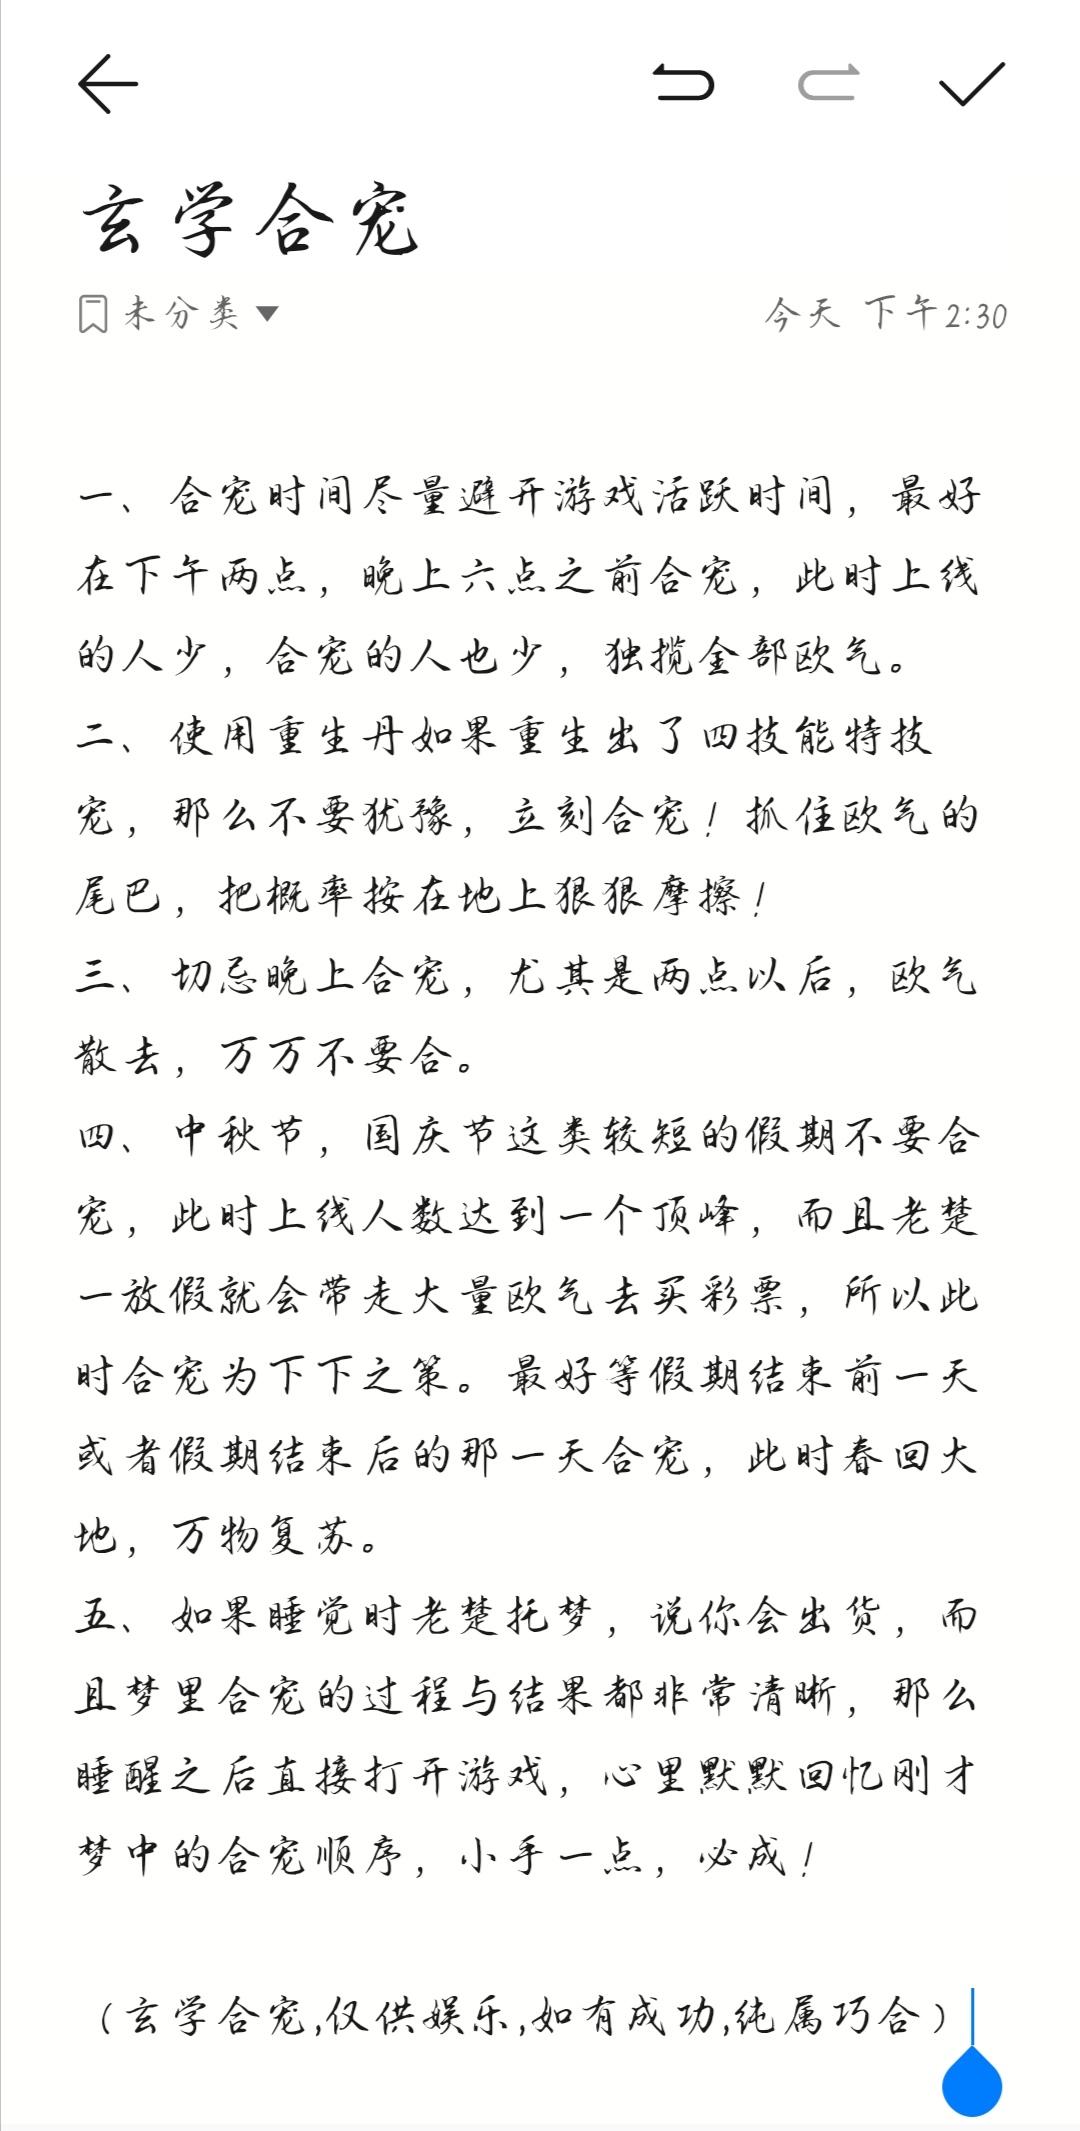 玄学合宠
未分类 今天 下午2:30
一、合宠时间尽量避开游戏活跃时间，最好
在下午两点，晚上六点之前合宠，此时上线
的人少，合宠的人也少，独揽全部欧气。
二、使用重生丹如果重生出了四技能特技
宠，那么不要犹豫，立刻合宠！抓住欧气的
尾巴，把概率按在地上狠狠摩擦！
三、切忌晚上合宠，尤其是两点以后，欧气
散去，万万不要合。
四、中秋节，国庆节这类较短的假期不要合
宠，此时上线人数达到一个顶峰，而且老楚
一放假就会带走大量欧气去买彩票，所以此
时合宠为下下之策。最好等假期结束前一天
或者假期结束后的那一天合宠，此时春回大
地，万物复苏。
五、如果睡觉时老楚托梦，说你会出货，而
且梦里合宠的过程与结果都非常清晰，那么
睡醒之后直接打开游戏，心里默默回忆刚才
梦中的合宠顺序，小手一点，必成！
（玄学合宠,仅供娱乐,如有成功,纯属巧合）